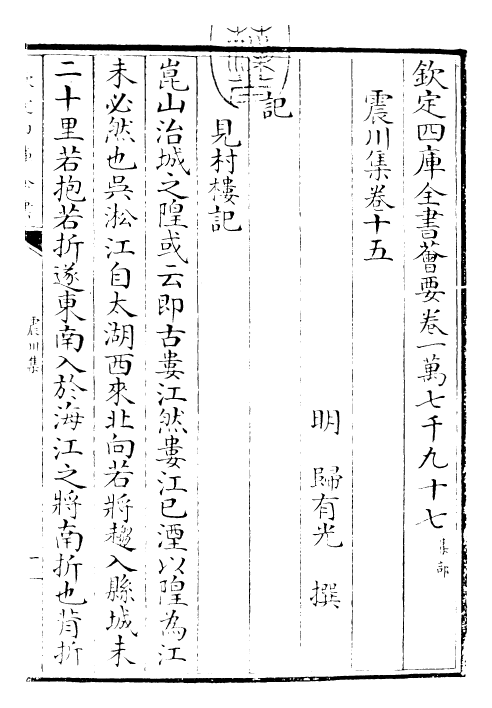 欽定四庫全書薈要卷一萬七千九十七 集部
震川集卷十五
明 歸有光 撰
記
見村樓記
崑山治城之隍或云即古婁江然婁江已湮以隍為江
未必然也吳淞江自太湖西來北向若將趨入縣城未
二十里若抱若折遂東南入於海江之將南折也背折
震川集